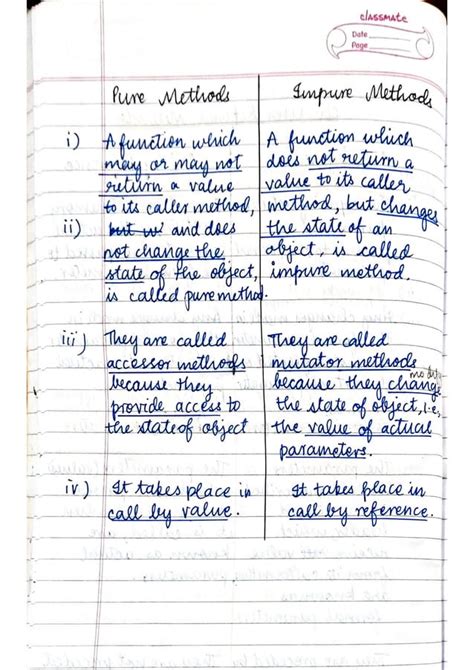 classmate
Date
Page
Pure Methods
Impure Methods
i) A function which
may or may not
return a value
to its caller method,
ii) but us and does
not change the
state of the object,
is called pure method.
A function which
does not return a
value to its caller
method, but changes
the state of an
object, is called
impure method.
iii) They are called
accessor methods
because they
provide access to
the state of object
They are called
mutator methods
because they change
the state of object, i.e,
the value of actual
parameters.
iv) It takes place in
call by value.
It takes place in
call by reference.